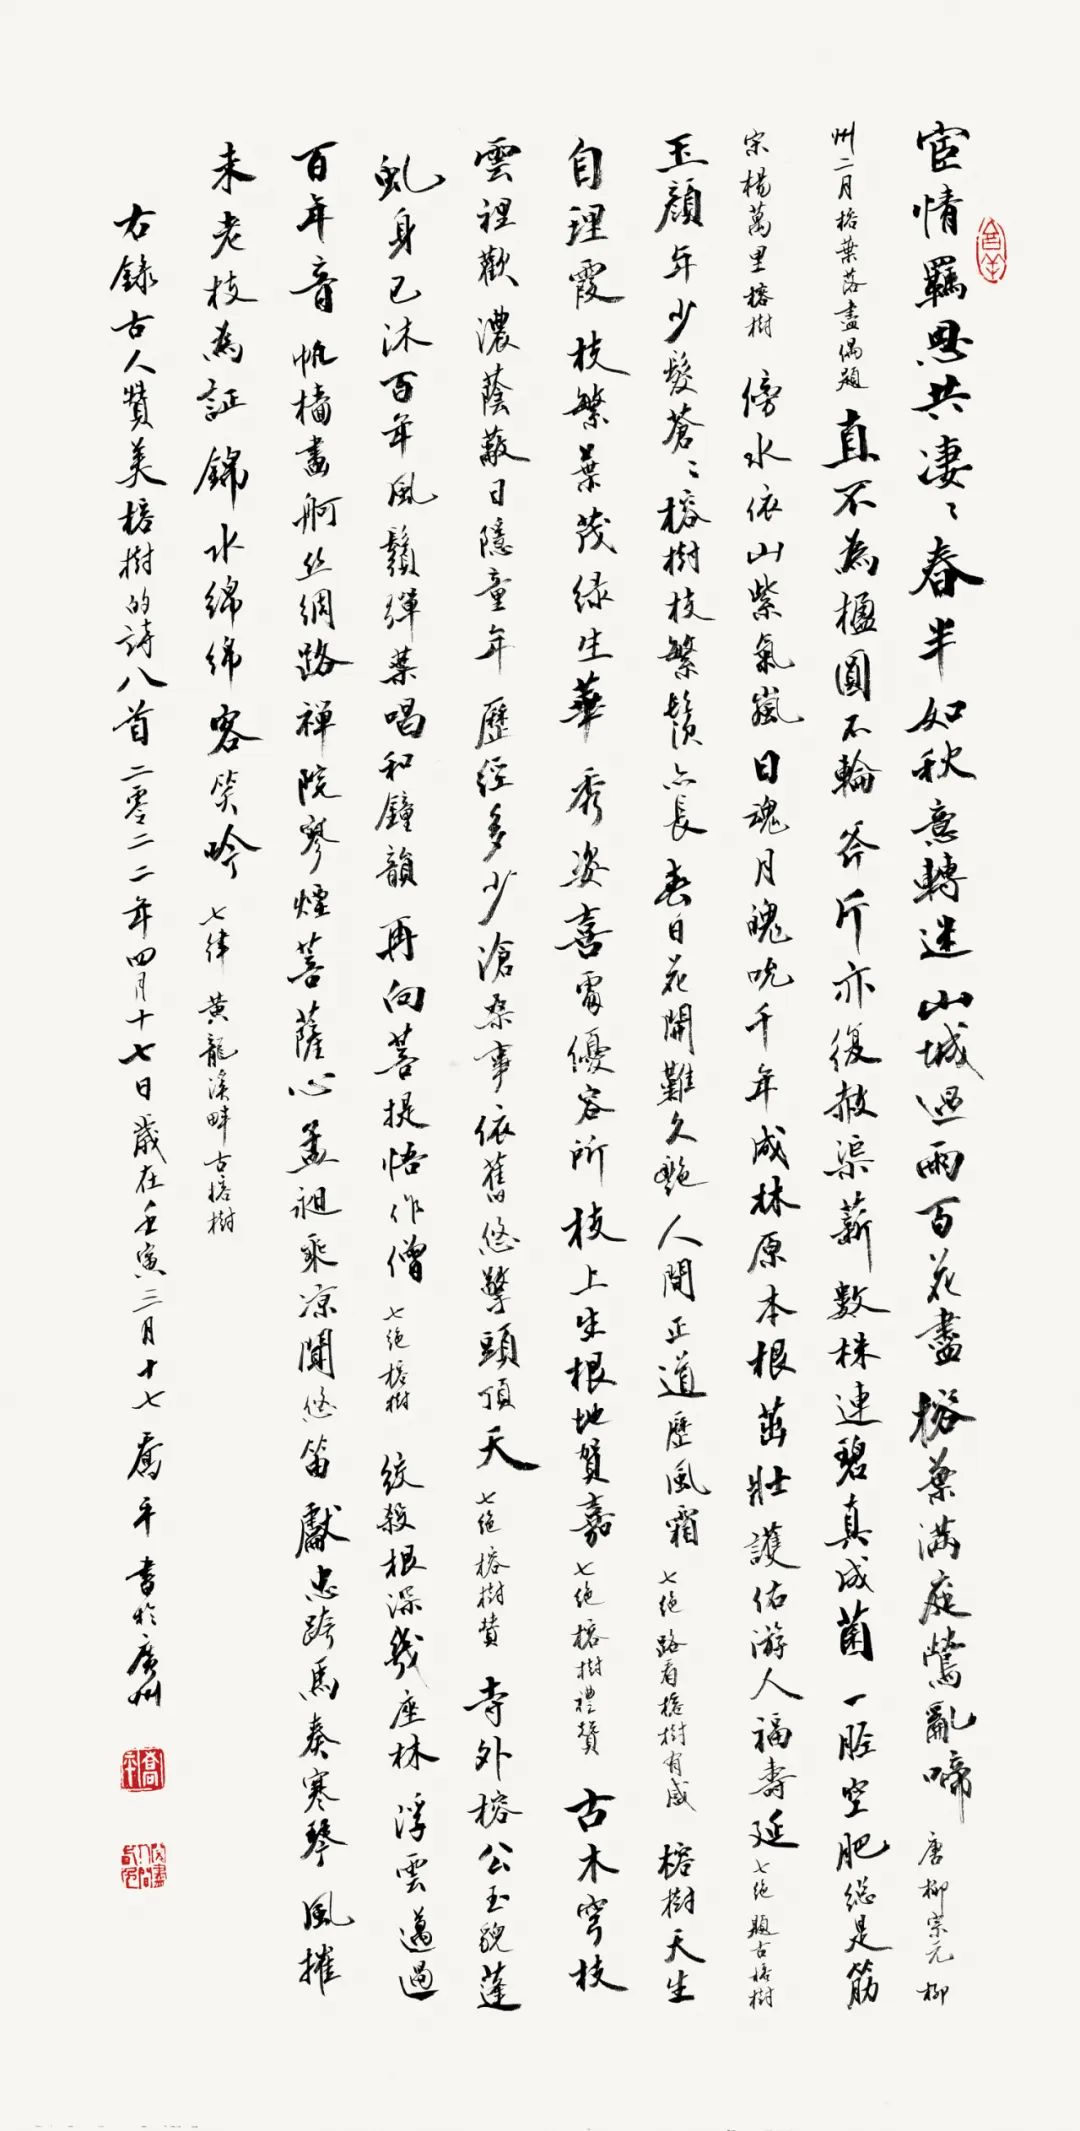 宦情羈思共淒〻春半如秋意轉迷山城過雨百花盡榕葉滿庭鶯亂啼唐柳宗元柳
州二月榕葉落盡偶題直不為楹圓不輪斧斤亦復赦渠薪數株連碧真成菌一脛空肥總是筋
宋楊萬里榕樹傍水依山紫氣嵐日魂月魄吮千年成林原本根茁壯護佑游人福壽延七絕題古榕樹
玉顏年少髮蒼〻榕樹枝繁鬚亦長春日花開難久艷人間正道歷風霜七絕路看榕樹有感榕樹天生
自理霞枝繁葉茂綠生華秀姿喜電優容所枝上生根地賀嘉七絕榕樹禮贊古木穹枝
雲裡歡濃蔭蔽日隱童年歷經多少滄桑事依舊悠擎頭頂天七絕榕樹贊寺外榕公玉貌蓬
虬身已沐百年風鬚彈葉唱和鐘韻再向菩提悟作僧七絕榕樹絞殺根深幾座林浮雲邁過
百年音帆檣畫舸丝綢路禅院寥煙菩薩心孟昶乘凉聞悠笛獻忠跨馬奏寒琴風摧
未老枝為証錦水綿綿客笑吟七律黃龍溪畔古榕樹
右錄古人贊美榕樹的詩八首二零二二年四月十七日歲在壬寅三月十七喬平書於廣州
喬平